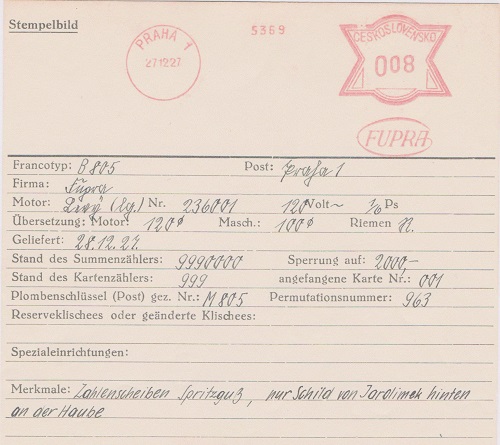 Stempelbild
PRAHA 1
27.12.27
5369
ČESKOSLOVENSKO
008
FUPRA
Francotyp: B 805 Post: Praha 1
Firma: Fupra
Motor: (Lg.) Nr. 236001 120 Volt~ 1/6 Ps
Übersetzung: Motor: 120 Masch.: 100 Riemen N.
Geliefert: 28.12.27.
Stand des Summenzählers: 9990000 Sperrung auf: 2000,-
Stand des Kartenzählers: 999 angefangene Karte Nr.: 001
Plombenschlüssel (Post) gez. Nr.: M 805 Permutationsnummer: 963
Reserveklischees oder geänderte Klischees:
Spezialeinrichtungen:
Merkmale: Zahlenscheiben Spritzguß, nur Schild von Jarolimek hinten
an der Haube